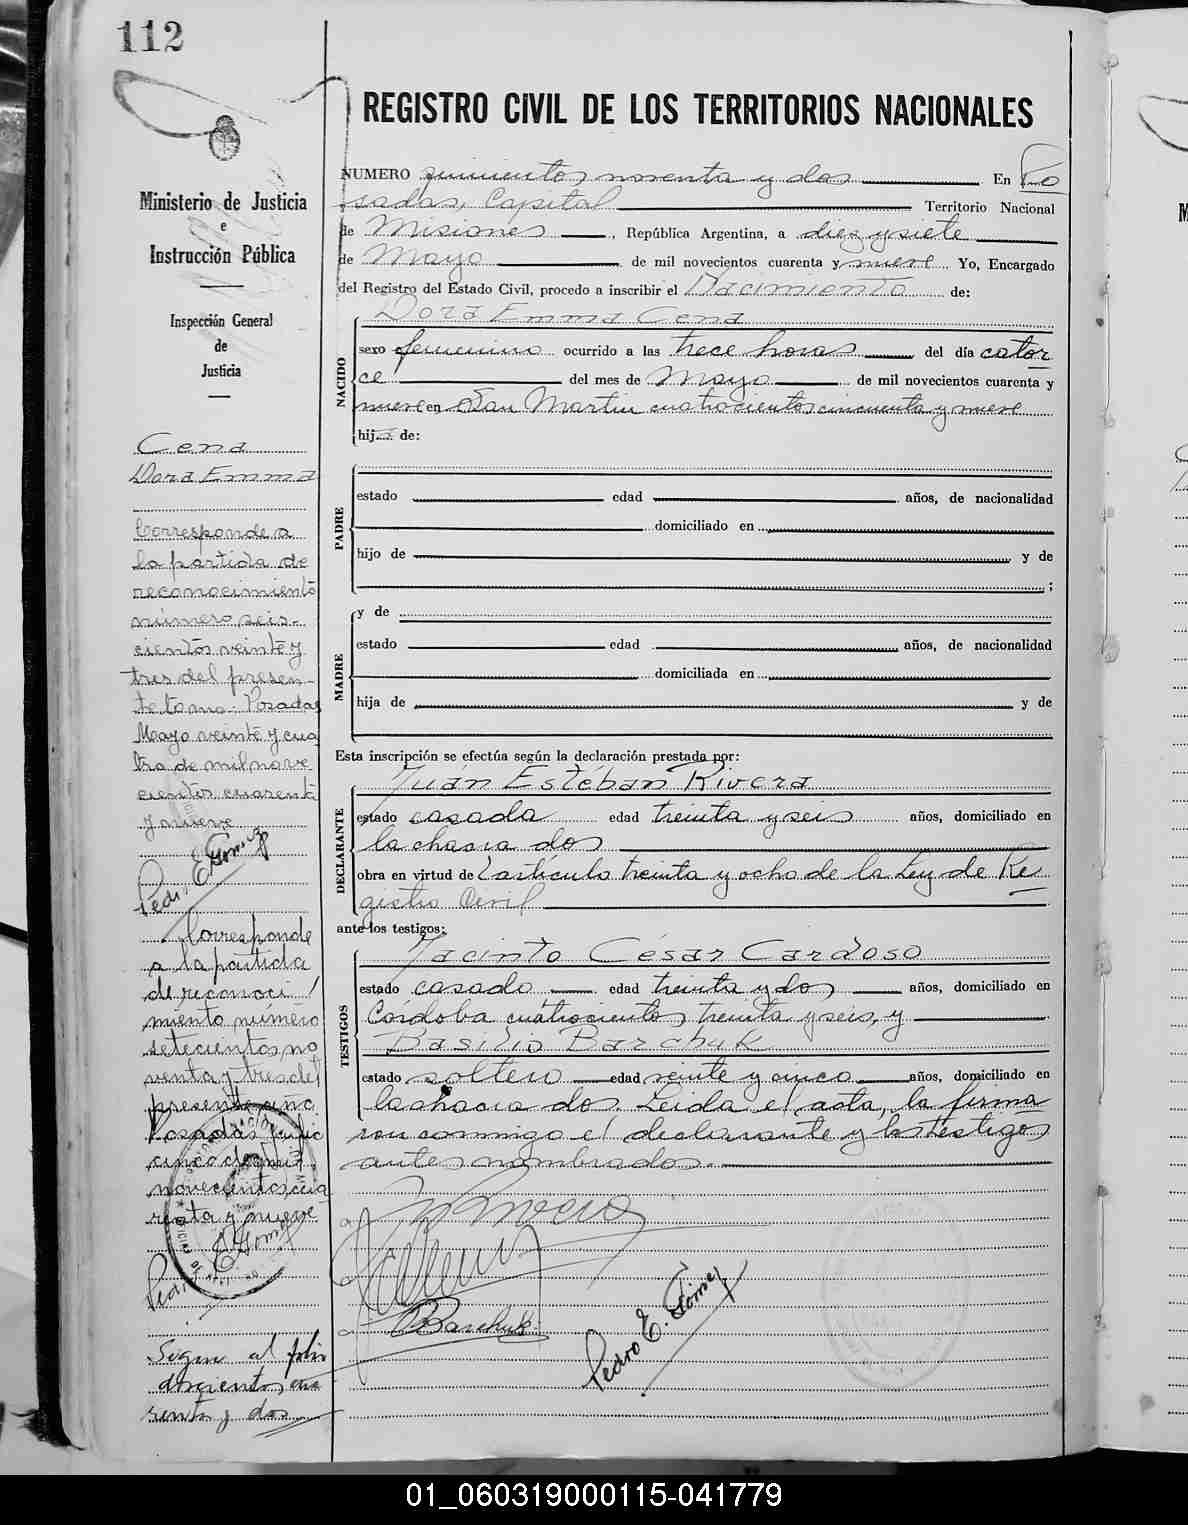 112
REGISTRO CIVIL DE LOS TERRITORIOS NACIONALES
Ministerio de Justicia
e
Instrucción Pública
Inspección General
de
Justicia
Cena
Dora Emma
Corresponde a
la partida de
reconocimiento
número seis-
cientos veinte y
tres del presen-
te tomo. Posadas
Mayo veinte y cua
tro de mil nove
cientos cuarenta
y nueve
Pedro E. Gomez
Corresponde
a la partida
de reconoci
miento número
setecientos no
venta y tres del
presente año
Posadas, Junio
cinco de mil
novecientos cua
renta y nueve
Pedro E. Gomez
Sigue al folio
doscientos cua
renta y dos
NUMERO quinientos noventa y dos En Po
sadas, Capital Territorio Nacional
de Misiones, República Argentina, a diez y siete
de Mayo de mil novecientos cuarenta y nueve Yo, Encargado
del Registro del Estado Civil, procedo a inscribir el Nacimiento de:
NACIDO
Dora Emma Cena
sexo femenino ocurrido a las trece horas del día cator
ce del mes de Mayo de mil novecientos cuarenta y
nueve en San Martin cuatrocientos cincuenta y nueve
hija de:
PADRE
estado edad años, de nacionalidad
domiciliado en
hijo de y de
;
MADRE
y de
estado edad años, de nacionalidad
domiciliada en
hija de y de
Esta inscripción se efectúa según la declaración prestada por:
DECLARANTE
Juan Estéban Rivera
estado casada edad treinta y seis años, domiciliado en
la chacra dos
obra en virtud de l'artículo treinta y ocho de la Ley de Re
gistro Civil
ante los testigos:
TESTIGOS
Jacinto César Cardoso
estado casado edad treinta y dos años, domiciliado en
Córdoba cuatrocientos treinta y seis, y
Basilio Barchuk
estado soltero edad veinte y cinco años, domiciliado en
la chacra dos. Leida el acta, la firma
ron conmigo el declarante y los testigos
antes nombrados.
Barchuk
Pedro E. Gomez
01_060319000115-041779